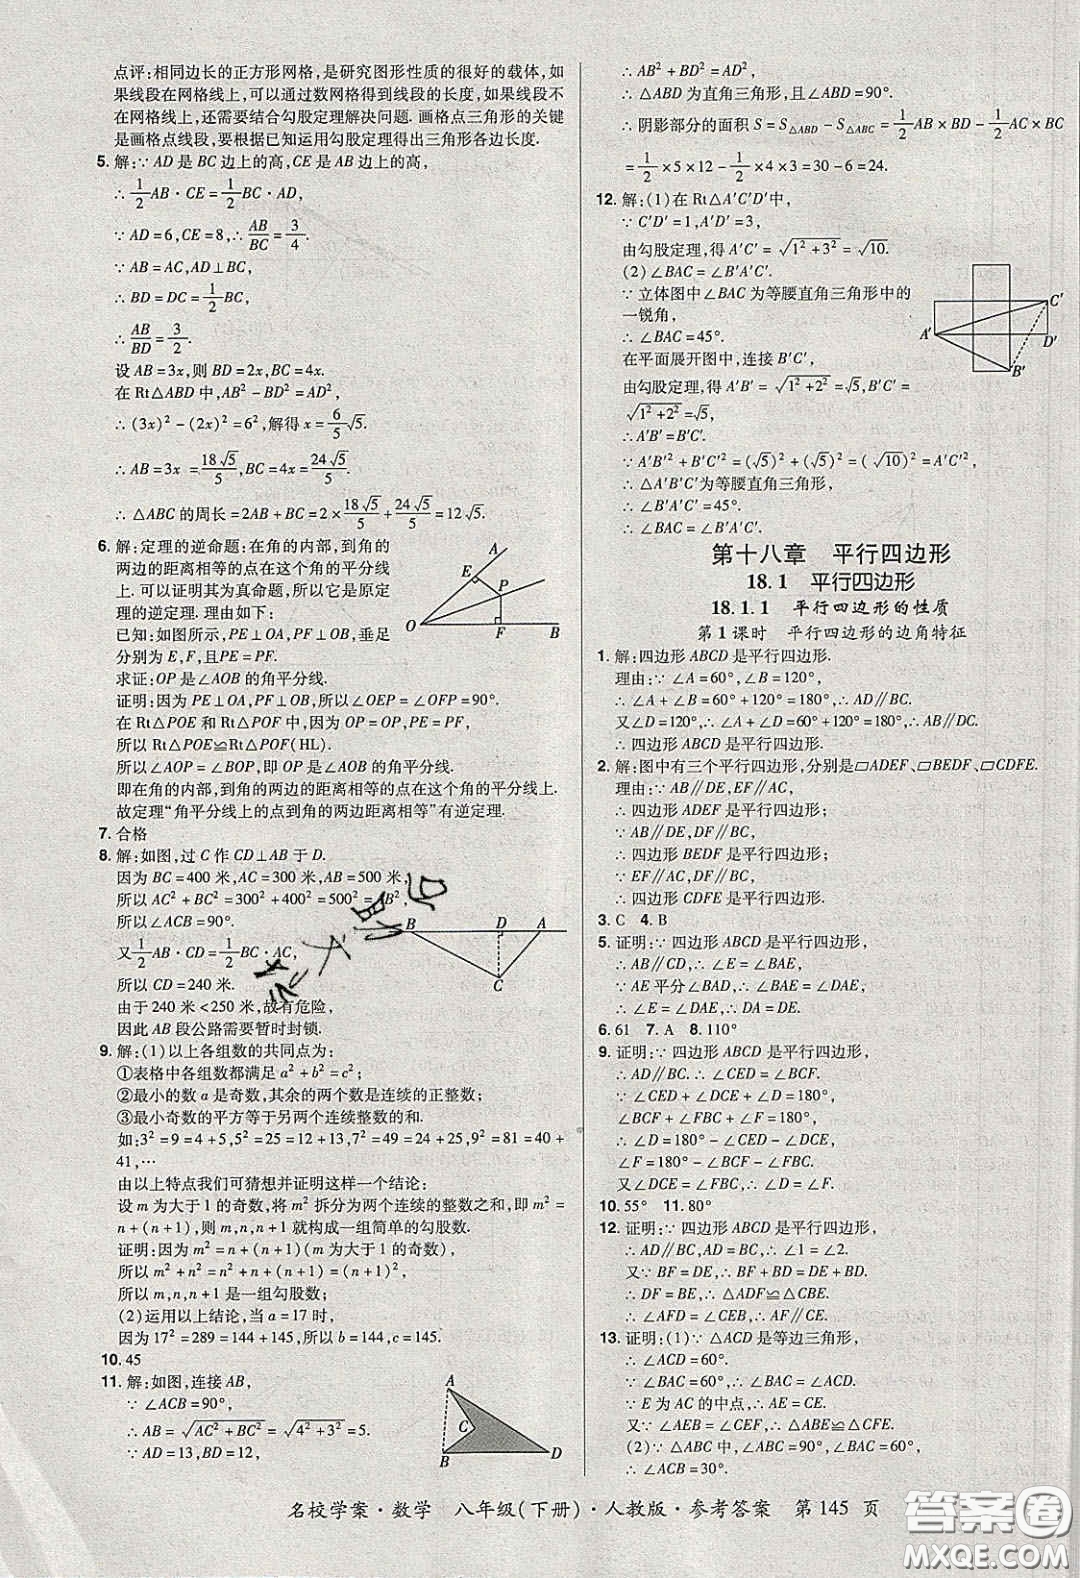 点评:相同边长的正方形网格,是研究图形性质的很好的载体,如
果线段在网格线上,可以通过数网格得到线段的长度,如线段不
在网格线上,还需要结合勾股定理解决问题. 画格点三角形的关键
是画格点线段,要根据已知运用勾股定理得出三角形各边长度.
5. 解:∵AD是BC边上的高,CE是AB边上的高,
∴ 1/2 AB·CE = 1/2 BC·AD,
∵AD=6,CE=8,∴ AB/BC = 3/4.
∵AB=AC,AD⊥BC,
∴BD=DC= 1/2 BC,
∴ AB/BD = 3/2.
设AB=3x,则BD=2x,BC=4x.
在Rt△ABD中,AB²-BD²=AD²,
∴(3x)²-(2x)²=6²,解得x= 6/5 √5.
∴AB=3x= 18√5/5,BC=4x= 24√5/5.
∴△ABC的周长=2AB+BC=2× 18√5/5 + 24√5/5 =12√5.
6. 解:定理的逆命题:在角的内部,到角的
两边的距离相等的点在这个角的平分线
上. 可以证明其为真命题,所以是原定理
的逆定理. 理由如下:
已知:如图所示,PE⊥OA,PF⊥OB,垂足
分别为E,F,且PE=PF.
求证:OP是∠AOB的角平分线.
证明:因为PE⊥OA,PF⊥OB,所以∠OEP=∠OFP=90°.
在Rt△POE和Rt△POF中,因为OP=OP,PE=PF,
所以Rt△POE≌Rt△POF(HL).
所以∠AOP=∠BOP,即OP是∠AOB的角平分线.
即在角的内部,到角的两边的距离相等的点在这个角的平分线上.
故定理“角平分线上的点到角的两边距离相等”有逆定理.
A
E
P
O
F
B
7. 合格
8. 解:如图,过C作CD⊥AB于D.
因为BC=400米,AC=300米,AB=500米,
所以AC²+BC²=300²+400²=500²=AB²,
所以∠ACB=90°.
又 1/2 AB·CD= 1/2 BC·AC,
所以CD=240米.
由于240米<250米,故有危险,
因此AB段公路需要暂时封锁.
B
D
A
C
9. 解:(1)以上各组数的共同点为:
①表格中各组数都满足a²+b²=c²;
②最小的数a是奇数,其余的两个数是连续的正整数;
③最小奇数的平方等于另两个连续整数的和.
如:3²=9=4+5,5²=25=12+13,7²=49=24+25,9²=81=40+
41,…
由以上特点我们可猜想并证明这样一个结论:
设m为大于1的奇数,将m²拆分为两个连续的整数之和,即m²=
n+(n+1),则m,n,n+1就构成一组简单的勾股数.
证明:因为m²=n+(n+1)(m为大于1的奇数),
所以m²+n²=n²+2n+1=(n+1)²,
所以m,n,n+1是一组勾股数;
(2)运用以上结论,当a=17时,
因为17²=289=144+145,所以b=144,c=145.
10. 45
11. 解:如图,连接AB,
∵∠ACB=90°,
∴AB=√(AC²+BC²)=√(4²+3²)=5.
∵AD=13,BD=12,
A
C
B
D
∴AB²+BD²=AD².
∴△ABD为直角三角形,且∠ABD=90°.
∴阴影部分的面积S=S△ABD-S△ABC= 1/2 AB×BD- 1/2 AC×BC
= 1/2 ×5×12- 1/2 ×4×3=30-6=24.
12. 解:(1)在Rt△A′C′D′中,
∵C′D′=1,A′D′=3,
由勾股定理,得A′C′=√(1²+3²)=√10.
(2)∠BAC=∠B′A′C′.
∵立体图中∠BAC为等腰直角三角形中的
一锐角,
∴∠BAC=45°.
在平面展开图中,连接B′C′,
由勾股定理,得A′B′=√(1²+2²)=√5,B′C′=
√(1²+2²)=√5,
∴A′B′=B′C′.
∵A′B′²+B′C′²=(√5)²+(√5)²=(√10)²=A′C′²,
∴△A′B′C′为等腰直角三角形,
∴∠B′A′C′=45°,
∴∠BAC=∠B′A′C′.
A′
C′
D′
B′
第十八章 平行四边形
18.1 平行四边形
18.1.1 平行四边形的性质
第1课时 平行四边形的边角特征
1. 解:四边形ABCD是平行四边形.
理由:∵∠A=60°,∠B=120°,
∴∠A+∠B=60°+120°=180°,∴AD∥BC.
又∠D=120°,∴∠A+∠D=60°+120°=180°,∴AB∥DC.
∴四边形ABCD是平行四边形.
2. 解:图中有三个平行四边形,分别是▱ADEF、▱BEDF、▱CDFE.
理由:∵AB∥DE,EF∥AC,
∴四边形ADEF是平行四边形;
∵AB∥DE,DF∥BC,
∴四边形BEDF是平行四边形;
∵EF∥AC,DF∥BC,
∴四边形CDFE是平行四边形.
3. C 4. B
5. 证明:∵四边形ABCD是平行四边形,
∴AB∥CD,∴∠E=∠BAE,
∵AE平分∠BAD,∴∠BAE=∠DAE,
∴∠E=∠DAE,∴DA=DE.
6. 61 7. A 8. 110°
9. 证明:∵四边形ABCD是平行四边形,
∴AD∥BC. ∴∠CED=∠BCF.
∵∠CED+∠DCE+∠D=180°,
∠BCF+∠FBC+∠F=180°,
∴∠D=180°-∠CED-∠DCE,
∠F=180°-∠BCF-∠FBC.
又∠DCE=∠FBC,∴∠D=∠F.
10. 55° 11. 80°
12. 证明:∵四边形ABCD是平行四边形,
∴AD∥BC,AD=BC,∴∠1=∠2.
又∵BF=DE,∴BF+BD=DE+BD.
∴DF=BE,∴△ADF≌△CBE.
∴∠AFD=∠CEB,∴AF∥CE.
13. 证明:(1)∵△ACD是等边三角形,
∴∠ACD=60°.
∵∠BAC=60°,∴∠BAC=∠ACD.
∵E为AC的中点,∴AE=CE.
又∵∠AEB=∠CEF,∴△ABE≌△CFE.
(2)∵△ABC中,∠ABC=90°,∠BAC=60°,
∴∠ACB=30°.
名校学案·数学 八年级(下册)·人教版·参考答案 第145页
答案圈
MXQE.COM